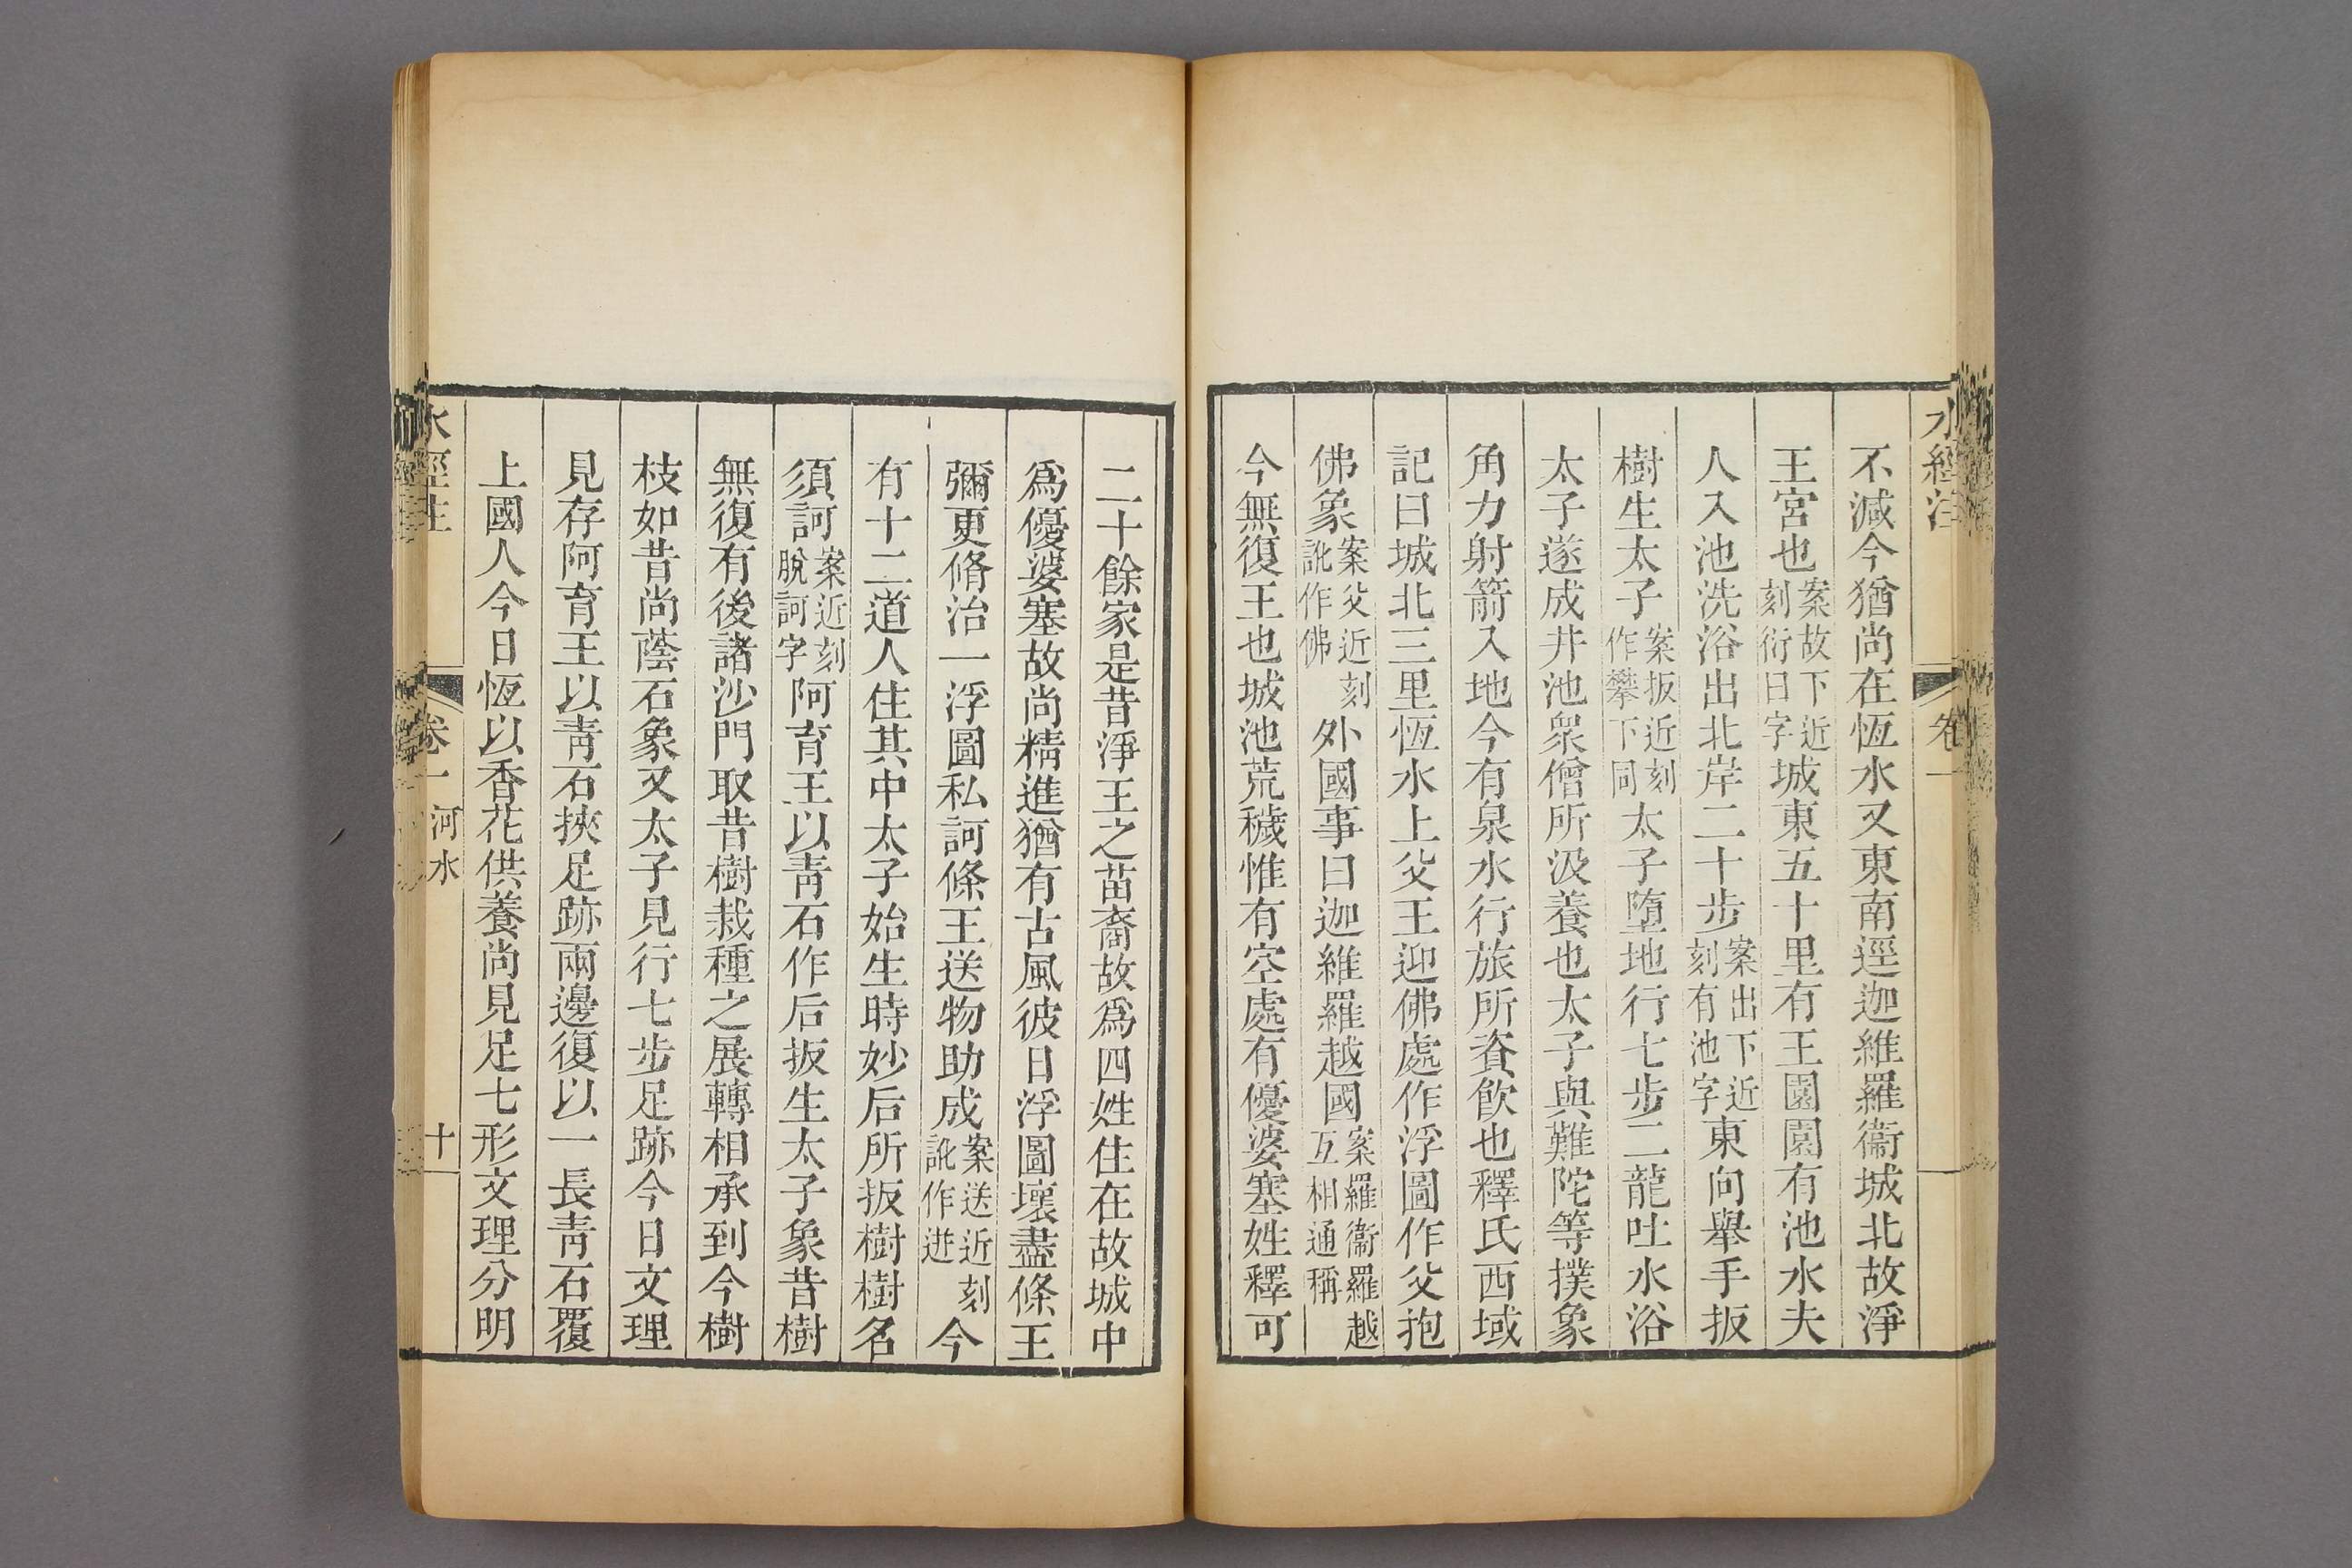 水經注 卷一
不滅今猶尚在恆水又東南逕迦維羅衞城北故淨
王宮也案故下近刻衍曰字城東五十里有王園園有池水夫
人入池洗浴出北岸二十步案出下近刻有池字東向舉手扳
樹生太子案扳近刻作攀下同太子墮地行七步二龍吐水浴
太子遂成井池眾僧所汲養也太子與難陀等撲象
角力射箭入地今有泉水行旅所資飲也釋氏西域
記曰城北三里恆水上父王迎佛處作浮圖作父抱
佛象案父近刻訛作佛外國事曰迦維羅越國案羅衞羅越互相通稱
今無復王也城池荒穢惟有空處有優婆塞姓釋可
二十餘家是昔淨王之苗裔故爲四姓住在故城中
爲優婆塞故尚精進猶有古風彼日浮圖壞盡條王
彌更脩治一浮圖私訶條王送物助成案送近刻訛作迸今
有十二道人住其中太子始生時妙后所扳樹樹名
須訶案近刻脫訶字阿育王以靑石作后扳生太子象昔樹
無復有後諸沙門取昔樹栽種之展轉相承到今樹
枝如昔尚蔭石象又太子見行七步足跡今日文理
見存阿育王以靑石挾足跡兩邊復以一長靑石覆
上國人今日恆以香花供養尚見足七形文理分明
水經注 卷一 河水 十